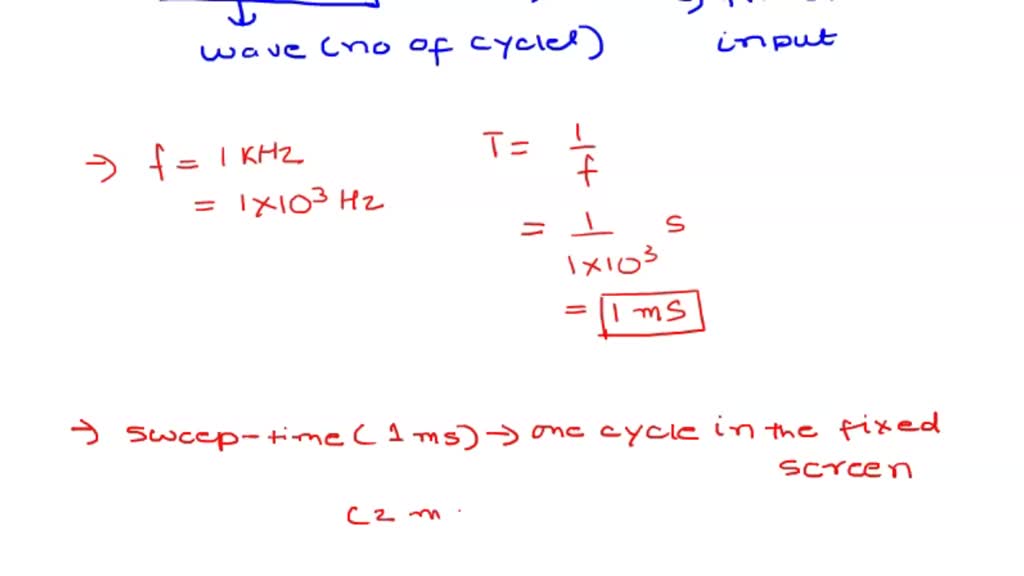 wave (no of cycles) input
→ f = 1 KHz
= 1×10³ Hz
T = 1/f
= 1/1×10³ s
= 1 mS
→ sweep-time (1 ms) → one cycle in the fixed
screen
(2 m